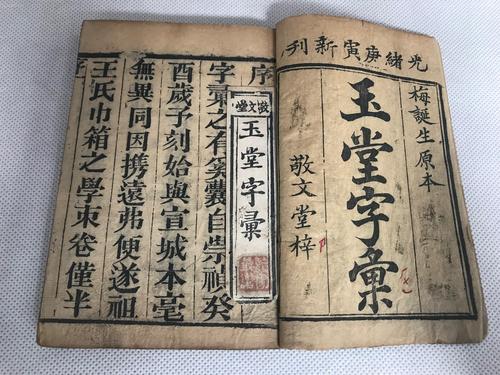 光緒庚寅新刊
梅誕生原本
玉堂字彙
敬文堂梓
敬文堂
玉堂字彙
序
字彙之有奚囊自崇禎癸
酉歲予刻始與宣城本毫
無異同因携遠弗便遂祖
王氏巾箱之學束卷僅半